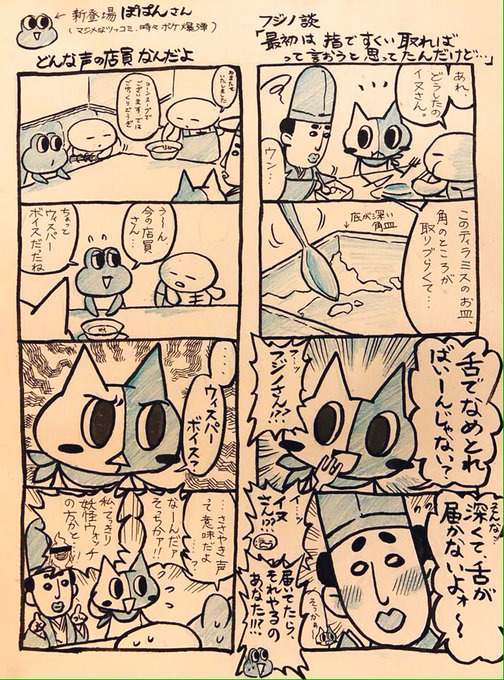 フジノ談
「最初は指ですくい取れば
って言おうと思ってたんだけど…」
あれ、
どうしたの
イヌさん。
ウン…
このティラミスのお皿、
角のところが
取りづらくて…
↓底が深い
角皿
舌でなめとれ
ばいーんじゃない?
フ…ッ
フジノさん!?
そんなっ
深くて、舌が
届かないよォ〜
イ…ッ
イヌ
さん!?!
届いてたら、
それやるの
あなた!?!
そっかぁ…
← 新登場 ぽぱんさん
(マジメなツッコミ、時々ボケ爆弾)
どんな声の店員なんだよ
おまたせ
いたしました
コーンスープで
ございます。では
ごゆっくりどうぞ
う〜ん
今の店員
さん…
ちょっと
ウィスパー
ボイスだったね
…
ウィスパー
ボイス?
…ささやき声
って意味だよ
なーんだァ
そっちかァ!!
私てっきり
妖怪ウォッチ
の方かと…